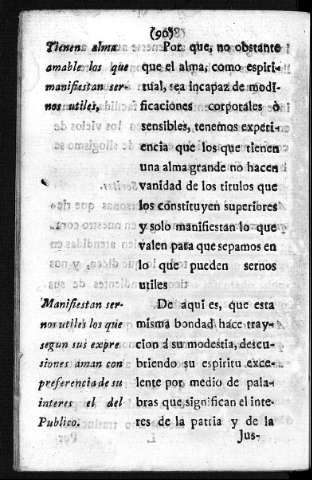 (90)
Tienen alma
amable los que
manifiestan ser-
nos utiles,
Por que, no obstante
que el alma, como espiri-
tual, sea incapaz de modi-
ficaciones corporales ò
sensibles, tenemos experi-
encia que los que tienen
una alma grande no hacen
vanidad de los titulos que
los constituyen superiores
y solo manifiestan lo que
valen para que sepamos en
lo que pueden sernos
utiles
Manifiestan ser-
nos utiles los que
segun sus expre
siones aman con
preferencia de su
interes el del
Publico.
De aqui es, que esta
misma bondad hace tray-
cion á su modestia, descu-
briendo su espiritu exce-
lente por medio de pala-
bras que significan el inte-
res de la patria y de la
Jus-